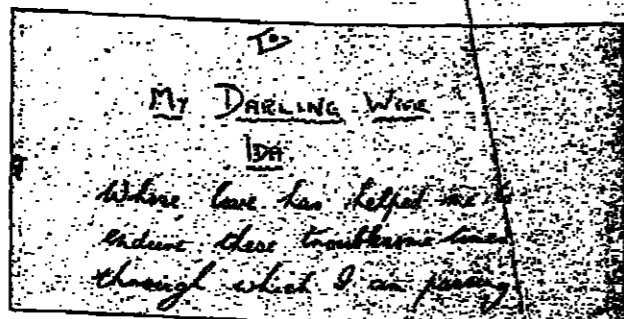 To
MY DARLING WIFE
IDA
Whose love has helped me to
endure these troublesome times
through which I am passing